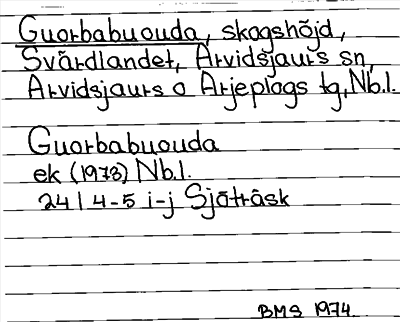 Guorbabuouda, skogshöjd,
Svärdlandet, Arvidsjaurs sn,
Arvidsjaurs o Arjeplogs tg, Nb.l.
Guorbabuouda
ek (1973) Nb.l.
24I 4-5 i-j Sjöträsk
BMS 1974